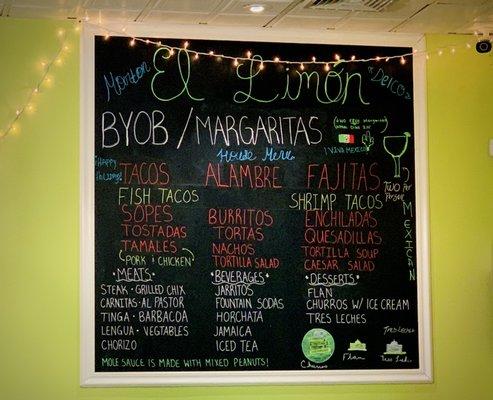 Morton El Limón "DELCO"
BYOB / MARGARITAS
(TWO FREE Margaritas
¡VIVA MEXICO!
House Menu
¡Happy
TACOS ALAMBRE FAJITAS
TWO Per Person
MEXICAN
FISH TACOS SHRIMP TACOS
SOPES BURRITOS ENCHILADAS
TOSTADAS TORTAS QUESADILLAS
TAMALES NACHOS TORTILLA SOUP
(PORK & CHICKEN) TORTILLA SALAD CAESAR SALAD
·MEATS· ·BEVERAGES· ·DESSERTS·
STEAK · GRILLED CHIX JARRITOS FLAN
CARNITAS · AL PASTOR FOUNTAIN SODAS CHURROS W/ ICE CREAM
TINGA · BARBACOA HORCHATA TRES LECHES
LENGUA · VEGTABLES JAMAICA
CHORIZO ICED TEA
Tres Leches
Churros Flan
MOLE SAUCE IS MADE WITH MIXED PEANUTS!